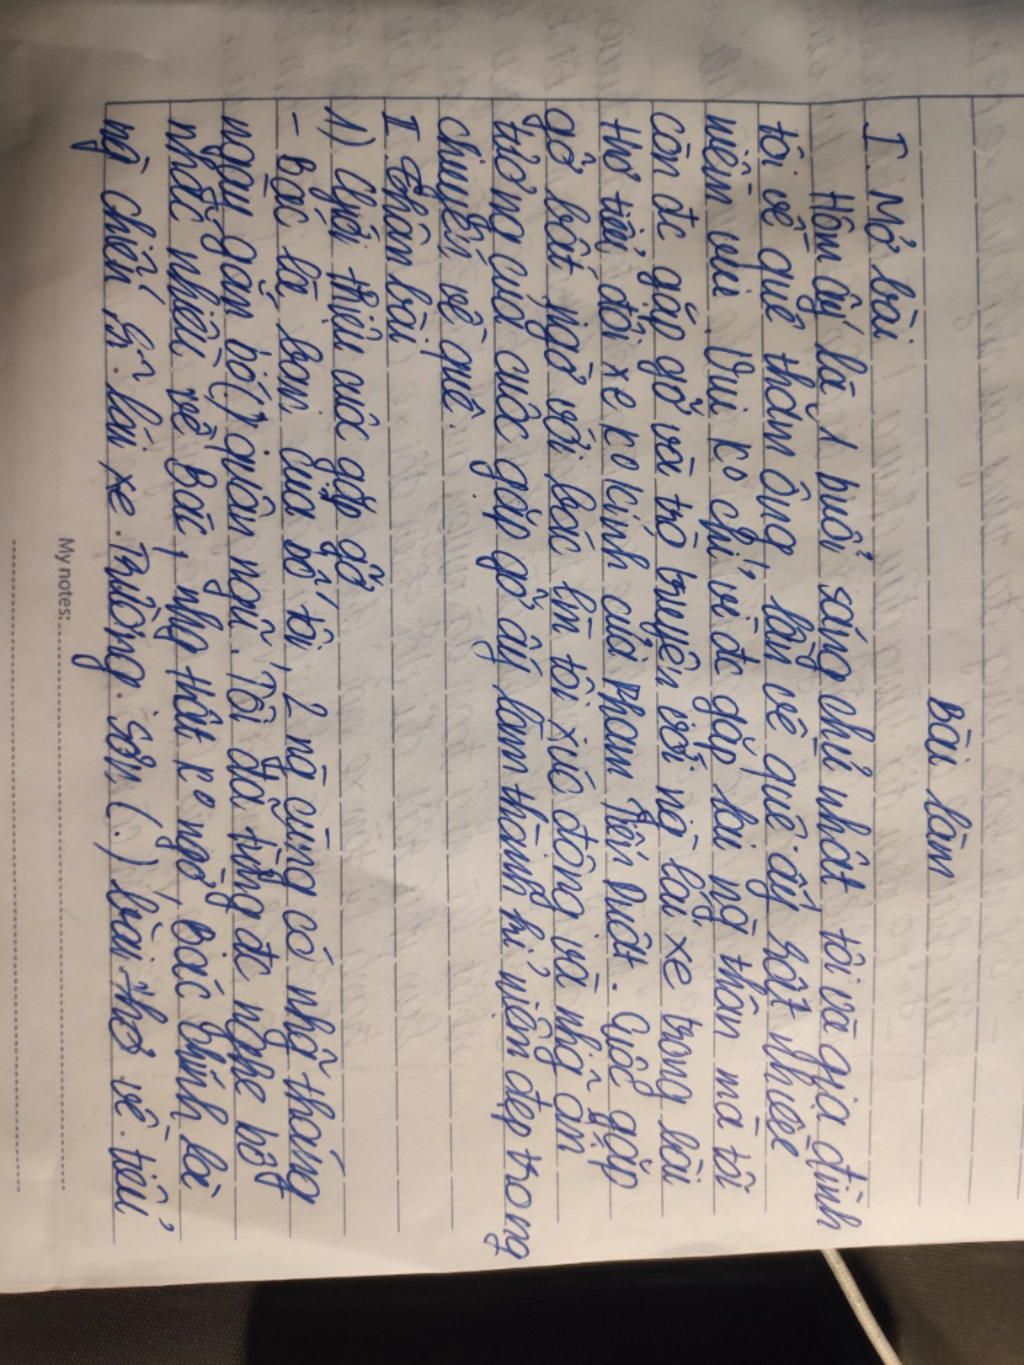 Bài làm
I. Mở bài
Hôm ấy là 1 buổi sáng chủ nhật tôi và gia đình
tôi về quê thăm ông, lần về quê ấy rất nhiều
niềm vui. Vui k° chỉ vì đc gặp lại ng thân mà tôi
còn đc gặp gỡ và trò truyện với ng lái xe trong bài
thơ tiểu đội xe k° kính của Phạm Tiến Duật. Cuộc gặp
gỡ bất ngờ với bác làm tôi xúc động và nhg ấn
tượng của cuộc gặp gỡ ấy làm thành kỉ niệm đẹp trong
chuyến về quê.
II. Thân bài
1) Giới thiệu cuộc gặp gỡ
- Bác là bạn của bố tôi, 2 ng cùng có nhg tháng
ngày gắn bó(?) quân ngũ. Tôi đã từng đc nghe bố
nhắc nhiều về Bác, nhg thật k° ngờ, Bác chính là
ng chiến sĩ lái xe Trường Sơn (.) bài thơ về tiểu
My notes: